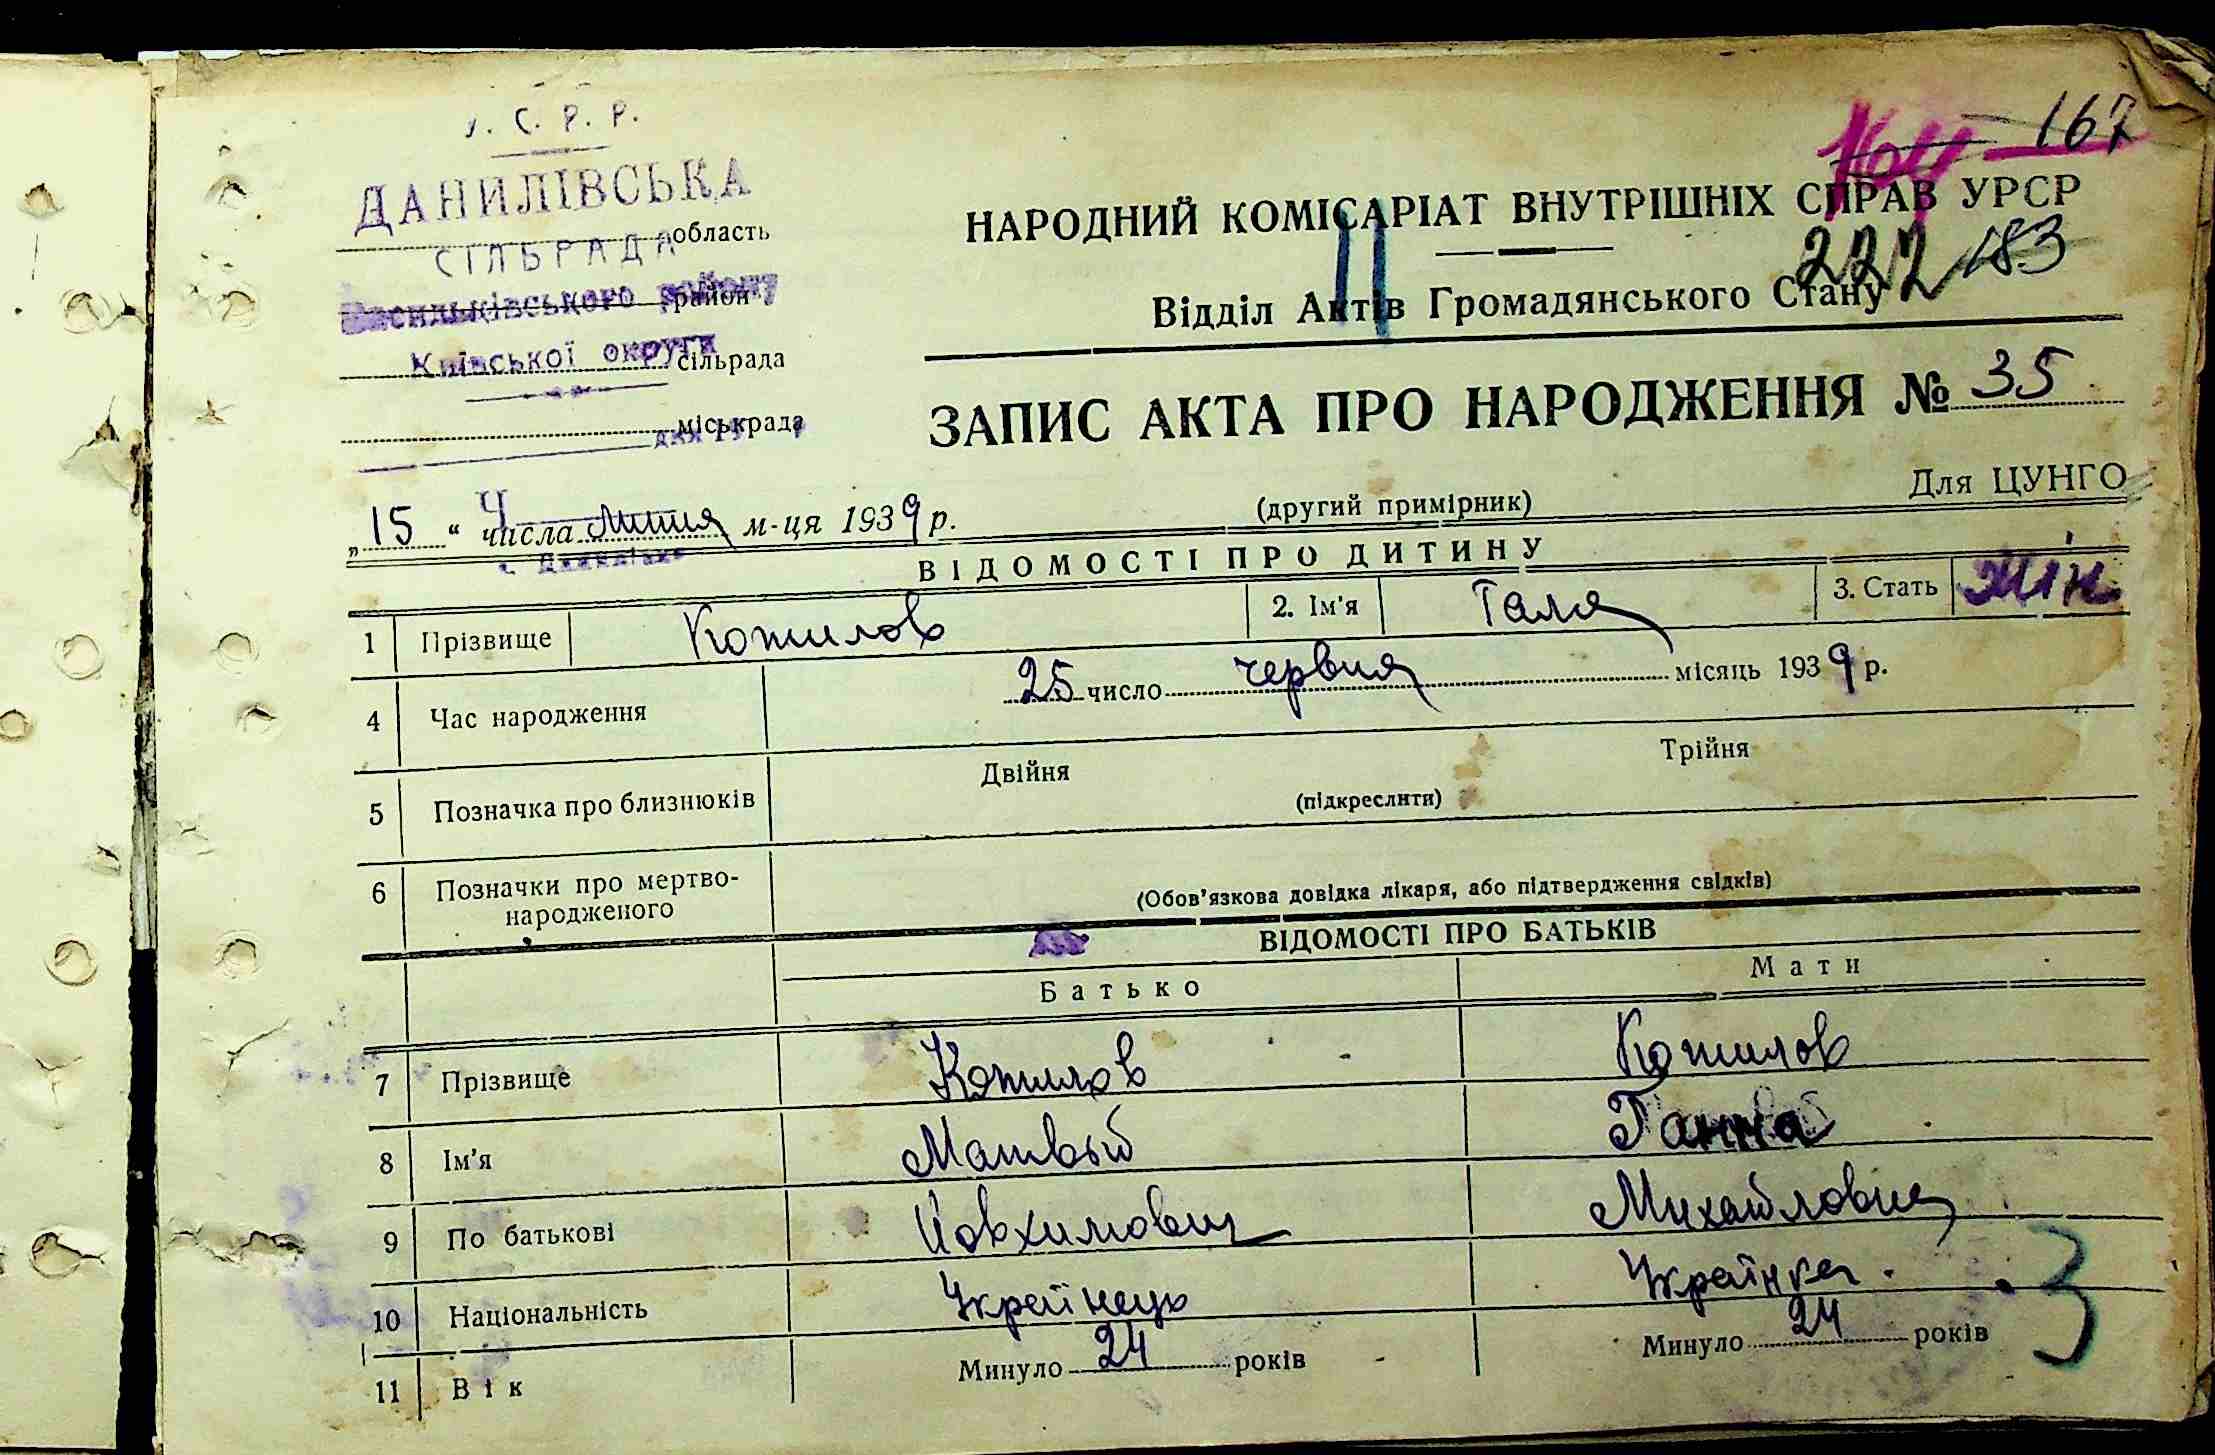 У. С. Р. Р.
ДАНИЛІВСЬКА
область
СІЛЬРАДА
Васильківського району
район
Київської округи
сільрада
міськрада
164 167
НАРОДНИЙ КОМІСАРІАТ ВНУТРІШНІХ СПРАВ УРСР
222 183
11
Відділ Актів Громадянського Стану
ЗАПИС АКТА ПРО НАРОДЖЕННЯ № 35
(другий примірник)
Для ЦУНГО
„15“ числа липня м-ця 1939 р.
с. Данилівка
ВІДОМОСТІ ПРО ДИТИНУ
1 Прізвище Копилов 2. Ім'я Галя 3. Стать жін
4 Час народження 25 число червня місяць 1939 р.
5 Позначка про близнюків Двійня Трійня
(підкреслити)
6 Позначки про мертво-
народженого
(Обов'язкова довідка лікаря, або підтвердження свідків)
ВІДОМОСТІ ПРО БАТЬКІВ
Батько Мати
7 Прізвище Копилов Копилов
8 Ім'я Матвый Ганна
9 По батькові Йовхимович Михайловна
10 Національність Украінець Украінка
11 Вік Минуло 24 років Минуло 24 років
3